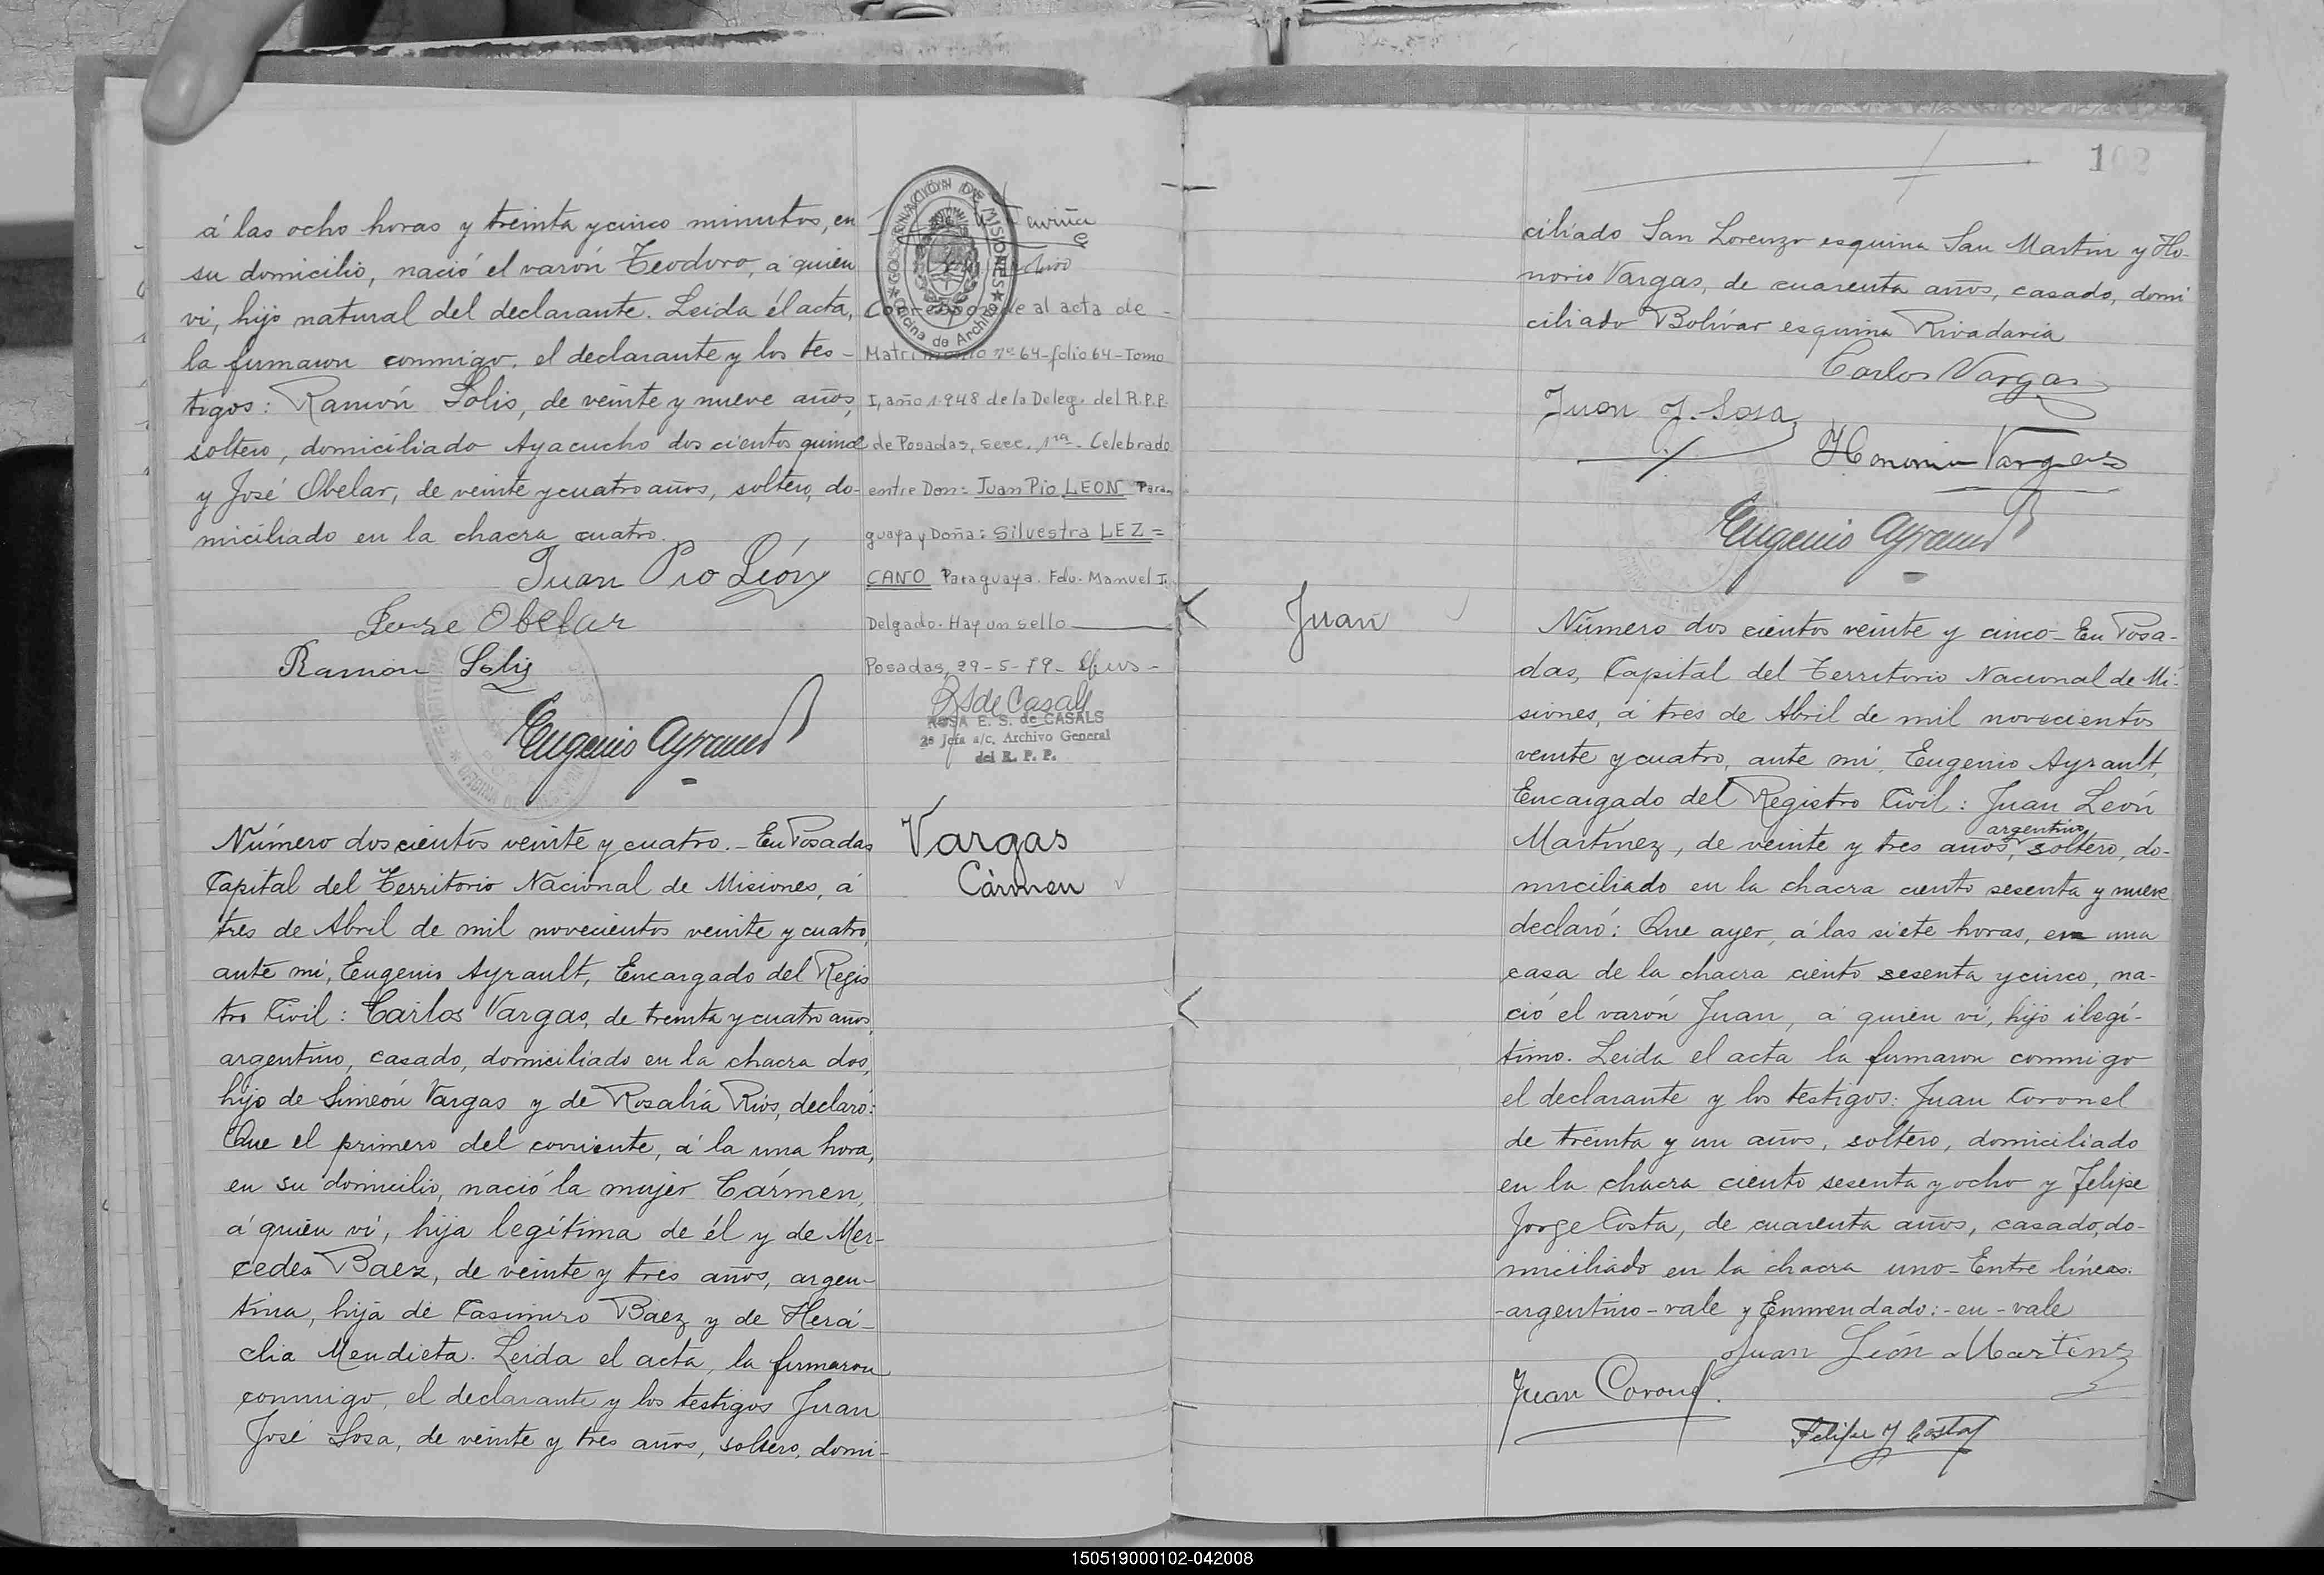 á las ocho horas y treinta y cinco minutos, en
su domicilio, nació el varón Teodoro, á quien
vi, hijo natural del declarante. Leida el acta,
la firmaron conmigo, el declarante y los tes-
tigos: Ramón Solis, de veinte y nueve años,
soltero, domiciliado Ayacucho dos cientos quince
y José Obelar, de veinte y cuatro años, soltero, do-
miciliado en la chacra cuatro.
Juan Pio León
Jose Obelar
Ramón Solis
Eugenio Ayrault
GOBERNACIÓN DE MISIONES
Oficina de Archivo
Corresponde al acta de -
Matrimonio nº 64 - folio 64 - Tomo
I, año 1948 de la Deleg. del R.P.P.
de Posadas, secc. 1ra - Celebrado
entre Don: Juan Pio LEON Para-
guayo y Doña: Silvestra LEZ=
CANO Paraguaya. Fdo. Manuel I.
Delgado. Hay un sello
Posadas, 29-5-79-
RSde Casals
ROSA E. S. de CASALS
2ª Jefa a/c. Archivo General
del R. P. P.
Número dos cientos veinte y cuatro.- En Posadas
Capital del Territorio Nacional de Misiones, á
tres de Abril de mil novecientos veinte y cuatro,
ante mi, Eugenio Ayrault, Encargado del Regis
tro Civil: Carlos Vargas, de treinta y cuatro años,
argentino, casado, domiciliado en la chacra dos,
hijo de Simeón Vargas y de Rosalía Rios, declaró:
Que el primero del corriente, á la una hora,
en su domicilio, nació la mujer Cármen,
á quien vi, hija legítima de él y de Mer-
cedes Baez, de veinte y tres años, argen-
tina, hija de Casimiro Baez y de Herá-
clia Mendieta. Leida el acta, la firmaron
conmigo, el declarante y los testigos Juan
José Sosa, de veinte y tres años, soltero, domi-
Vargas
Cármen
102
ciliado San Lorenzo esquina San Martin y Ho-
norio Vargas, de cuarenta años, casado, domi
ciliado Bolívar esquina Rivadavia
Carlos Vargas
Juan J. Sosa
Honorio Vargas
Eugenio Ayrault
Juan
Número dos cientos veinte y cinco - En Posa-
das, Capital del Territorio Nacional de Mi-
siones, á tres de Abril de mil novecientos
veinte y cuatro, ante mi, Eugenio Ayrault,
Encargado del Registro Civil: Juan León
argentino,
Martínez, de veinte y tres años, soltero, do-
miciliado en la chacra ciento sesenta y nueve
declaró: Que ayer, á las siete horas, en una
casa de la chacra ciento sesenta y cinco, na-
ció el varón Juan, á quien vi, hijo ilegí-
timo. Leida el acta la firmaron conmigo
el declarante y los testigos: Juan Coronel
de treinta y un años, soltero, domiciliado
en la chacra ciento sesenta y ocho y Felipe
Jorge Costa, de cuarenta años, casado, do-
miciliado en la chacra uno - Entre líneas:
-argentino - vale y Enmendado: - en - vale
Juan León Martinez
Juan Coronel.
Felipe J Costa
150519000102-042008